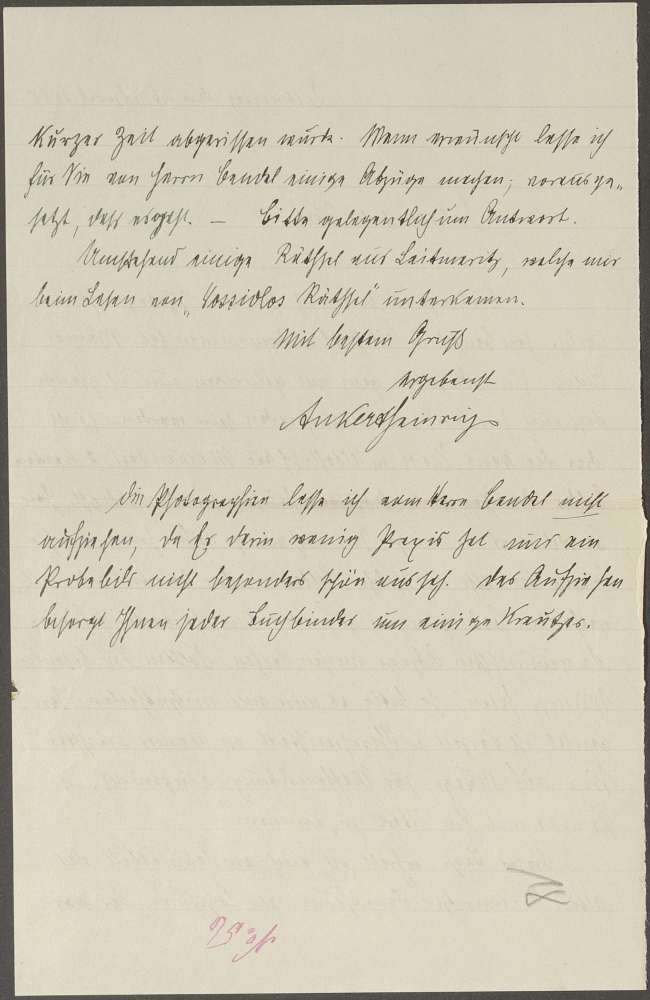 kurzer Zeit abgerissen wurde. Wenn erwünscht lasse ich
für Sie von Herrn Bendel einige Abzüge machen; vorausge„
setzt, daß es geht. — Bitte gelegentlich um Antwort.
Umstehend einige Räthsel aus Leitmeritz, welche mir
beim Lesen von „Wossidlos Räthsel" unterkamen.
Mit bestem Gruß
ergebenst
Ankert Heinrich
Die Photographien lasse ich vom Herrn Bendel nicht
aufziehen, da Er darin wenig Praxis hat und ein
Probebild nicht besonders schön aussah. Das Aufziehen
besorgt Ihnen jeder Buchbinder um einige Kreutzer.